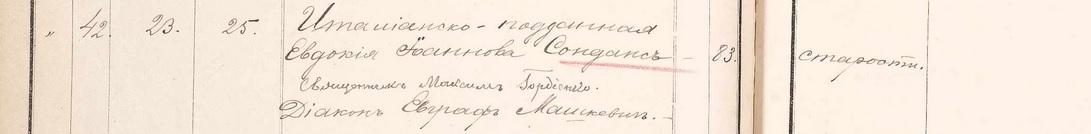 „ 42. 23. 25. Италіанско-подданная
Евдокія Іоаннова Сондансъ — 83. старости.
Священникъ Максимъ
Діаконъ Евграфъ Машкевич.